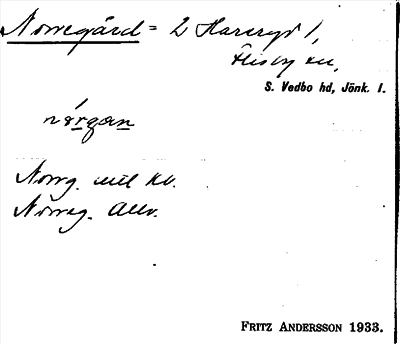 Norregård = 2 Hareryd 1,
Flisby sn,
S. Vedbo hd, Jönk. l.
nórgan
Norrg. mil kv.
Norreg. Allv.
FRITZ ANDERSSON 1933.